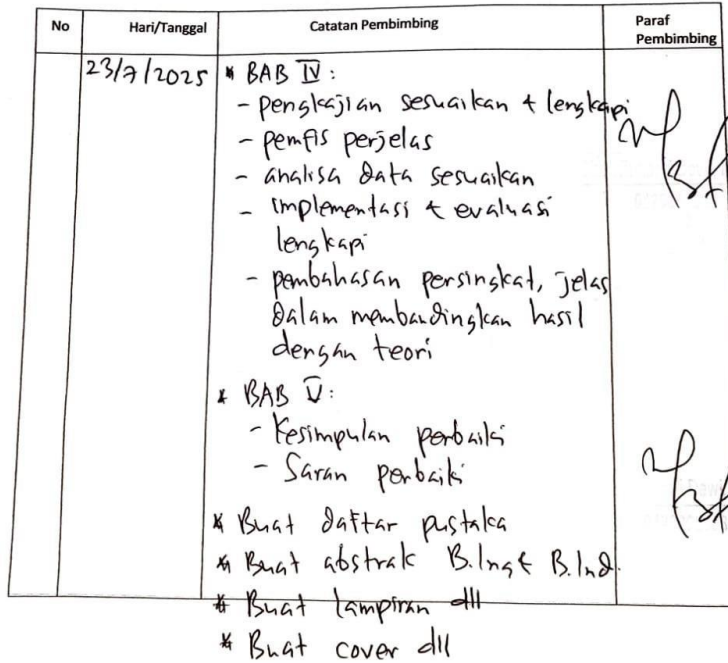 No Hari/Tanggal Catatan Pembimbing Paraf Pembimbing
23/7/2025 * BAB IV :
- pengkajian sesuaikan & lengkapi
- pemfis perjelas
- analisa data sesuaikan
- implementasi & evaluasi
lengkapi
- pembahasan persingkat, jelas
dalam membandingkan hasil
dengan teori
* BAB V :
- Kesimpulan perbaiki
- Saran perbaiki
* Buat daftar pustaka
* Buat abstrak B.Ing & B.Ind.
* Buat lampiran dll
* Buat cover dll